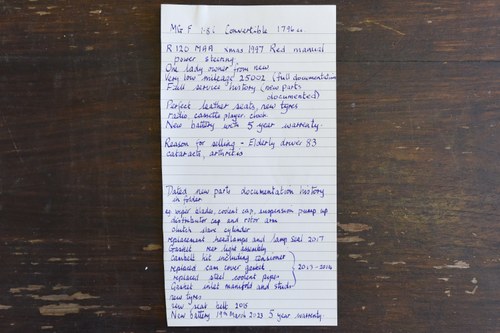 MG F 1.8i Convertible 1796cc
R120 MAR xmas 1997 Red manual
power steering.
One lady owner from new
Very low mileage 25002 (full documentation
Full service history (new parts
documented)
Perfect leather seats, new tyres
radio, cassette player, cover.
New battery with 5 year warranty.
Reason for selling - Elderly driver 83
cataracts, arthritis
Dated new parts documentation history
in folder
eg wiper blades, coolant cap, suspension pump up
distributor cap and rotor arm
clutch slave cylinder
replacement headlamps and lamp seal 2017
Gasket rear light assembly
cambelt kit including tensioner
replaced cam cover gasket
replaced steel coolant pipes
2013-2014
Gasket inlet manifold and studs
new tyres
new seat belt 2018
New battery 19th March 2023 5 year warranty.